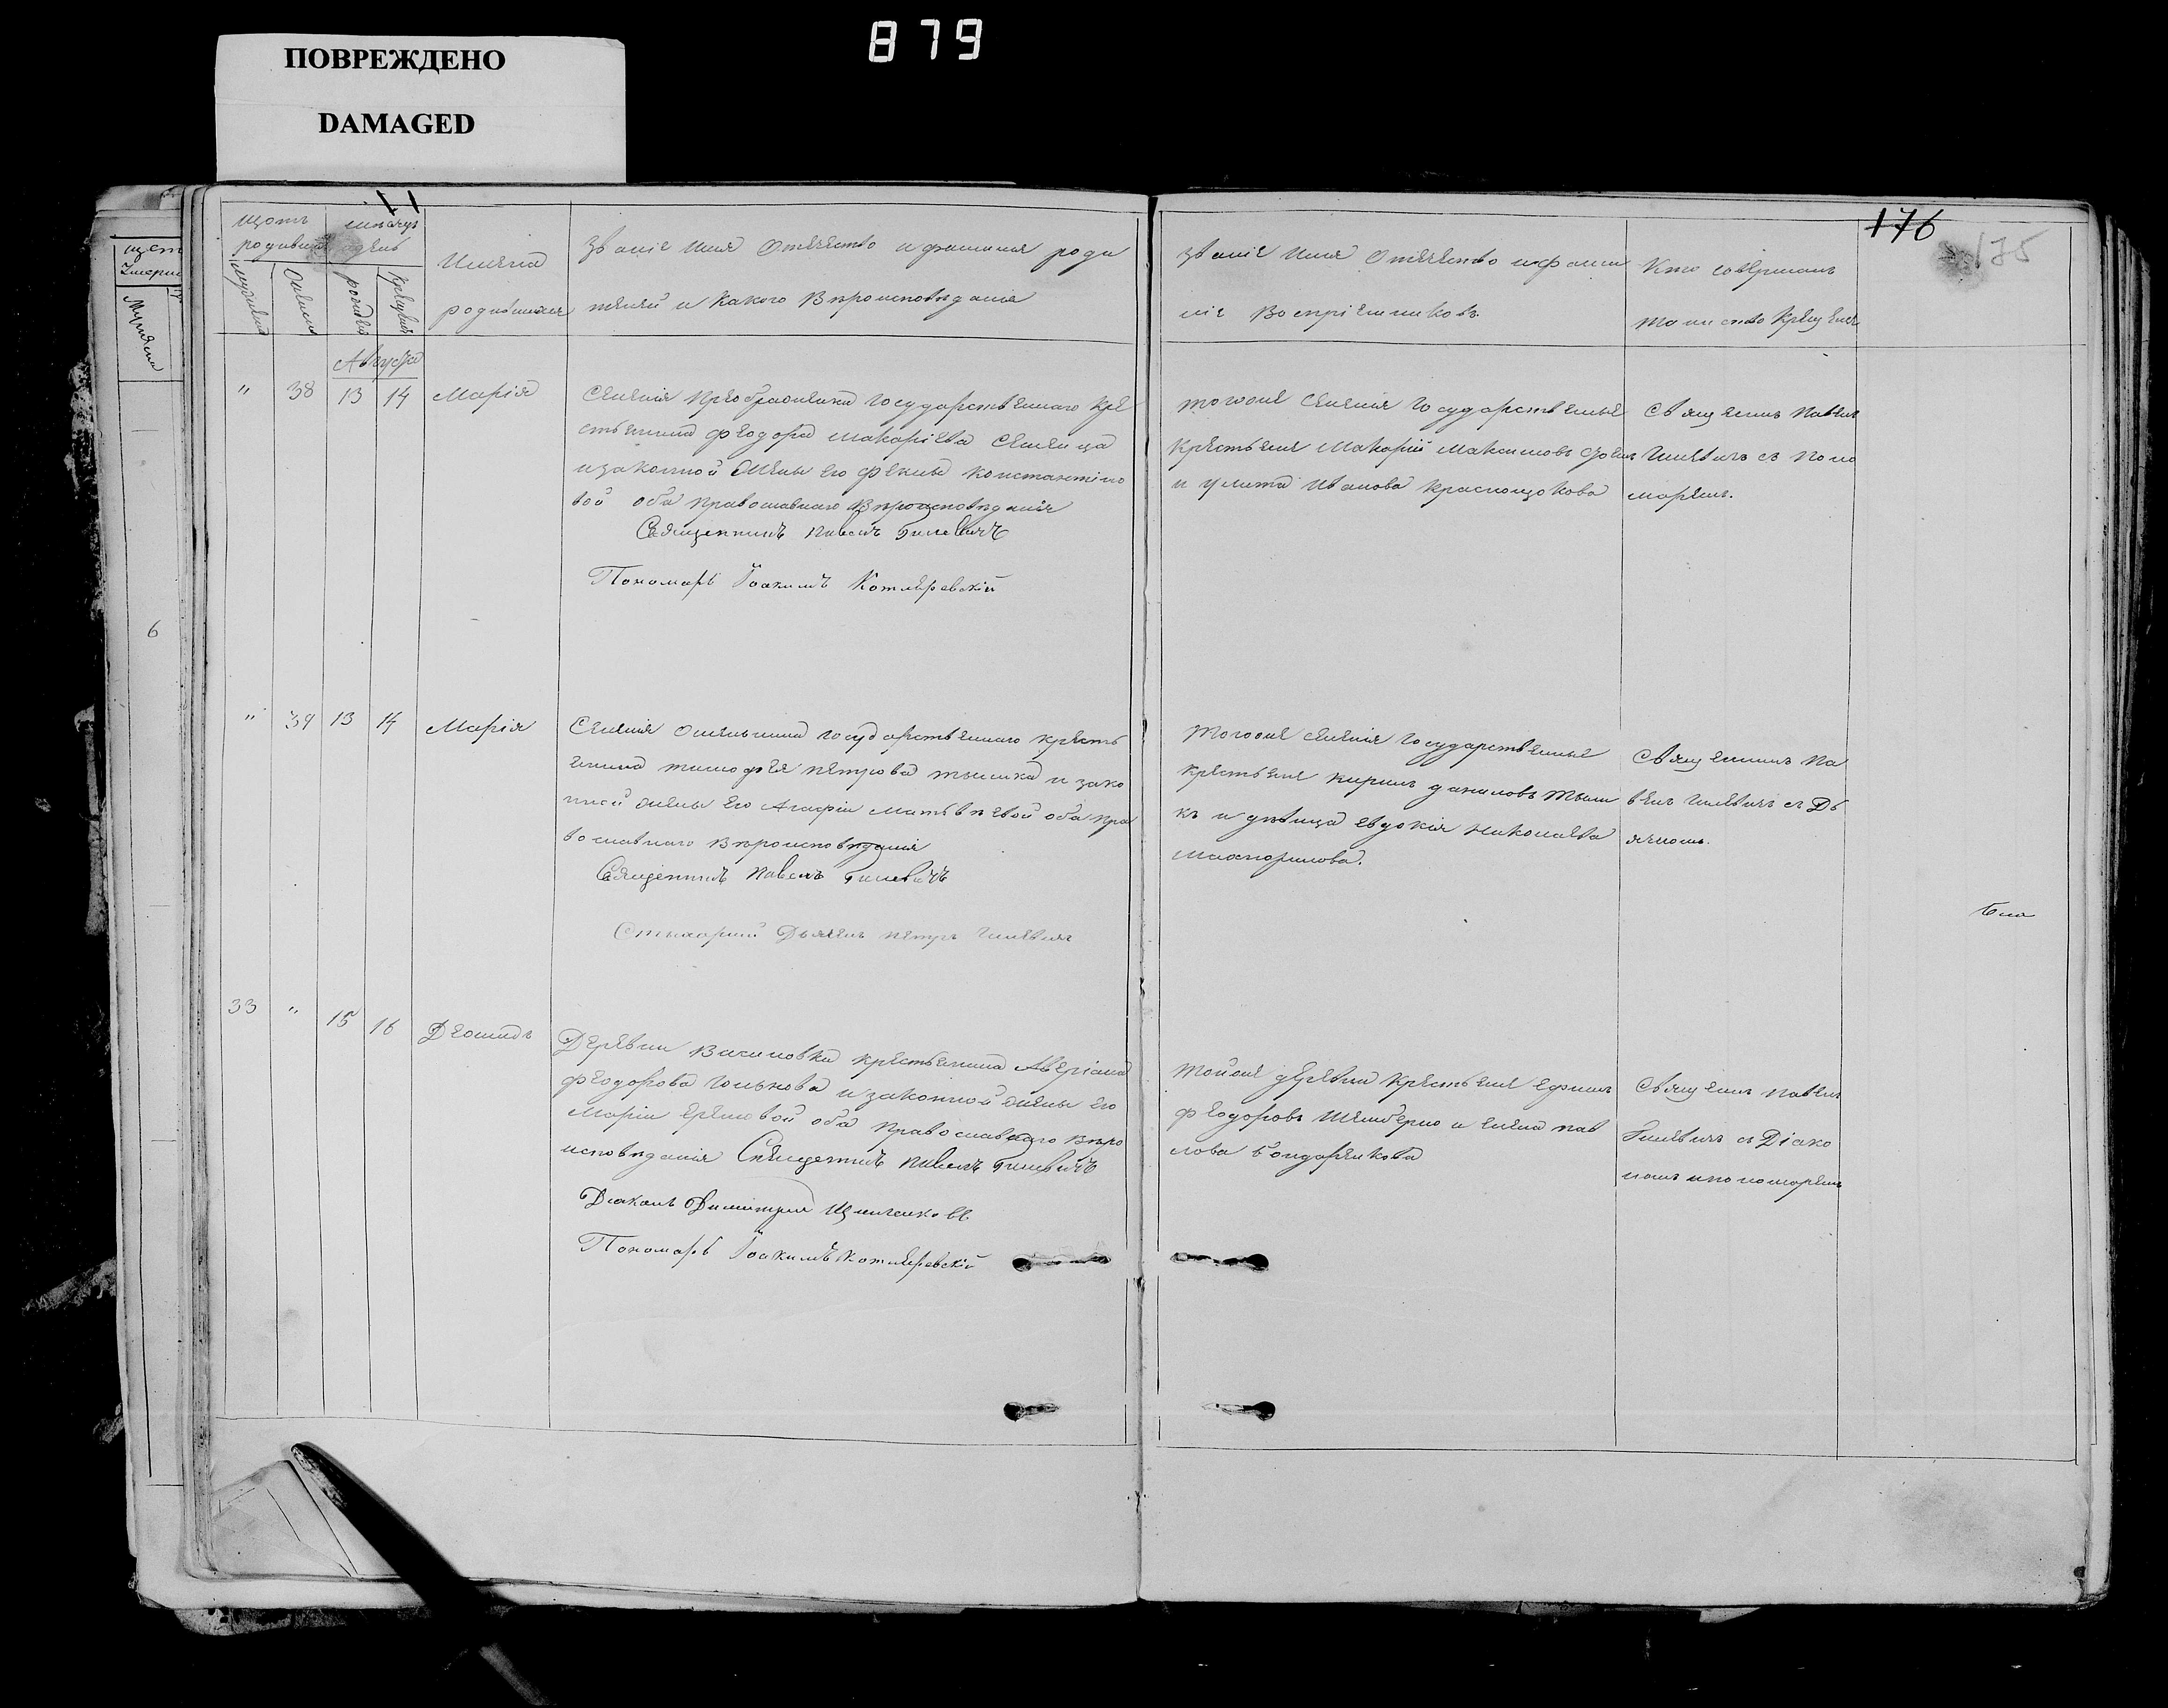 879
ПОВРЕЖДЕНО
DAMAGED
11
176
175
щотъ родивши
мѣсяцъ и день
Имена
родившихся
Званіе Имя Отечество и фамилия роди
телей и какого Вѣроисповѣданія
Званіе Имя Отечество и фами
лія Воспріемниковъ
Кто совершалъ
таинство Крещенія
мужеска
женска
рожденія
крещенія
Августа
" 38 13 14 Марія
Селенія Преображенки государственнаго кре
стьянина Феодора Макаріева
и законной жены его Феклы Константіно
вой оба православнаго Вѣроисповѣданія
Священникъ Павелъ Гилевичъ
Пономарь Іоакимъ Котляревскій
тогоже селенія государственные
крестьяне Макарій Максимовъ
и Улита Иванова Краснощокова
Священникъ Павелъ
Гилевичъ съ поно
маремъ.
6
" 39 13 14 Марія
Селенія государственнаго кресть
янина Тимофея Петрова и зако
нной жены его Агафіи Матвѣевой оба пра
вославнаго Вѣроисповѣданія
Священникъ Павелъ Гилевичъ
Дьячекъ Петръ Гилевичъ
тогоже селенія государственные
крестьяне Кирилъ Даниловъ Тыши
къ и дѣвица Евдокія Николаева
Священникъ Па
велъ Гилевичъ съ Дь
ячкомъ.
33 " 15 16 Деомидъ
Деревни крестьянина Аверіана
Феодорова и законной жены его
Маріи Ереміовой оба Православнаго Вѣро
исповѣданія Священникъ Павелъ Гилевичъ
Діаконъ Димитрій
Пономарь Іоакимъ Котляревскій
Тойже деревни крестьяне Ефимъ
Феодоровъ и Елена Пав
лова Бондаренкова
Священникъ Павелъ
Гилевичъ съ Діако
номъ и пономаремъ